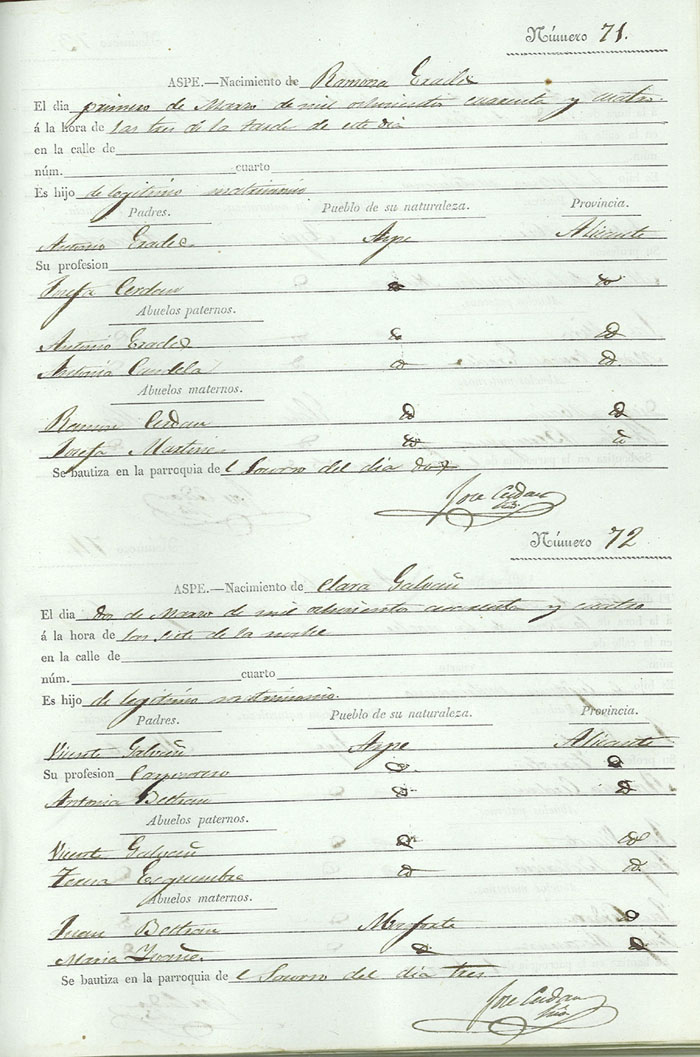 Número 71.
ASPE.—Nacimiento de Ramona Eradez
El dia primero de Marzo de mil ochocientos cuarenta y cuatro
á la hora de las tres de la tarde de este dia
en la calle de
núm. cuarto
Es hijo de legitimo matrimonio
Padres. Pueblo de su naturaleza. Provincia.
Antonio Eradez Aspe Alicante
Su profesion
Josefa Cerdan
Abuelos paternos.
Antonio Eradez
Antonia Candela
Abuelos maternos.
Ramon Cerdan
Josefa Martinez
Se bautiza en la parroquia de l Socorro del dia dos
Jose Cerdan
Número 72
ASPE.—Nacimiento de Clara Galvañ
El dia dos de Marzo de mil ochocientos cuarenta y cuatro
á la hora de las siete de la noche
en la calle de
núm. cuarto
Es hijo de legitimo matrimonio.
Padres. Pueblo de su naturaleza. Provincia.
Vicente Galvañ Aspe Alicante
Su profesion Carpintero
Antonia Beltran
Abuelos paternos.
Vicente Galvañ
Teresa Esquembre
Abuelos maternos.
Juan Beltran Monforte
Maria Yvañez
Se bautiza en la parroquia de l Socorro del dia tres
Jose Cerdan